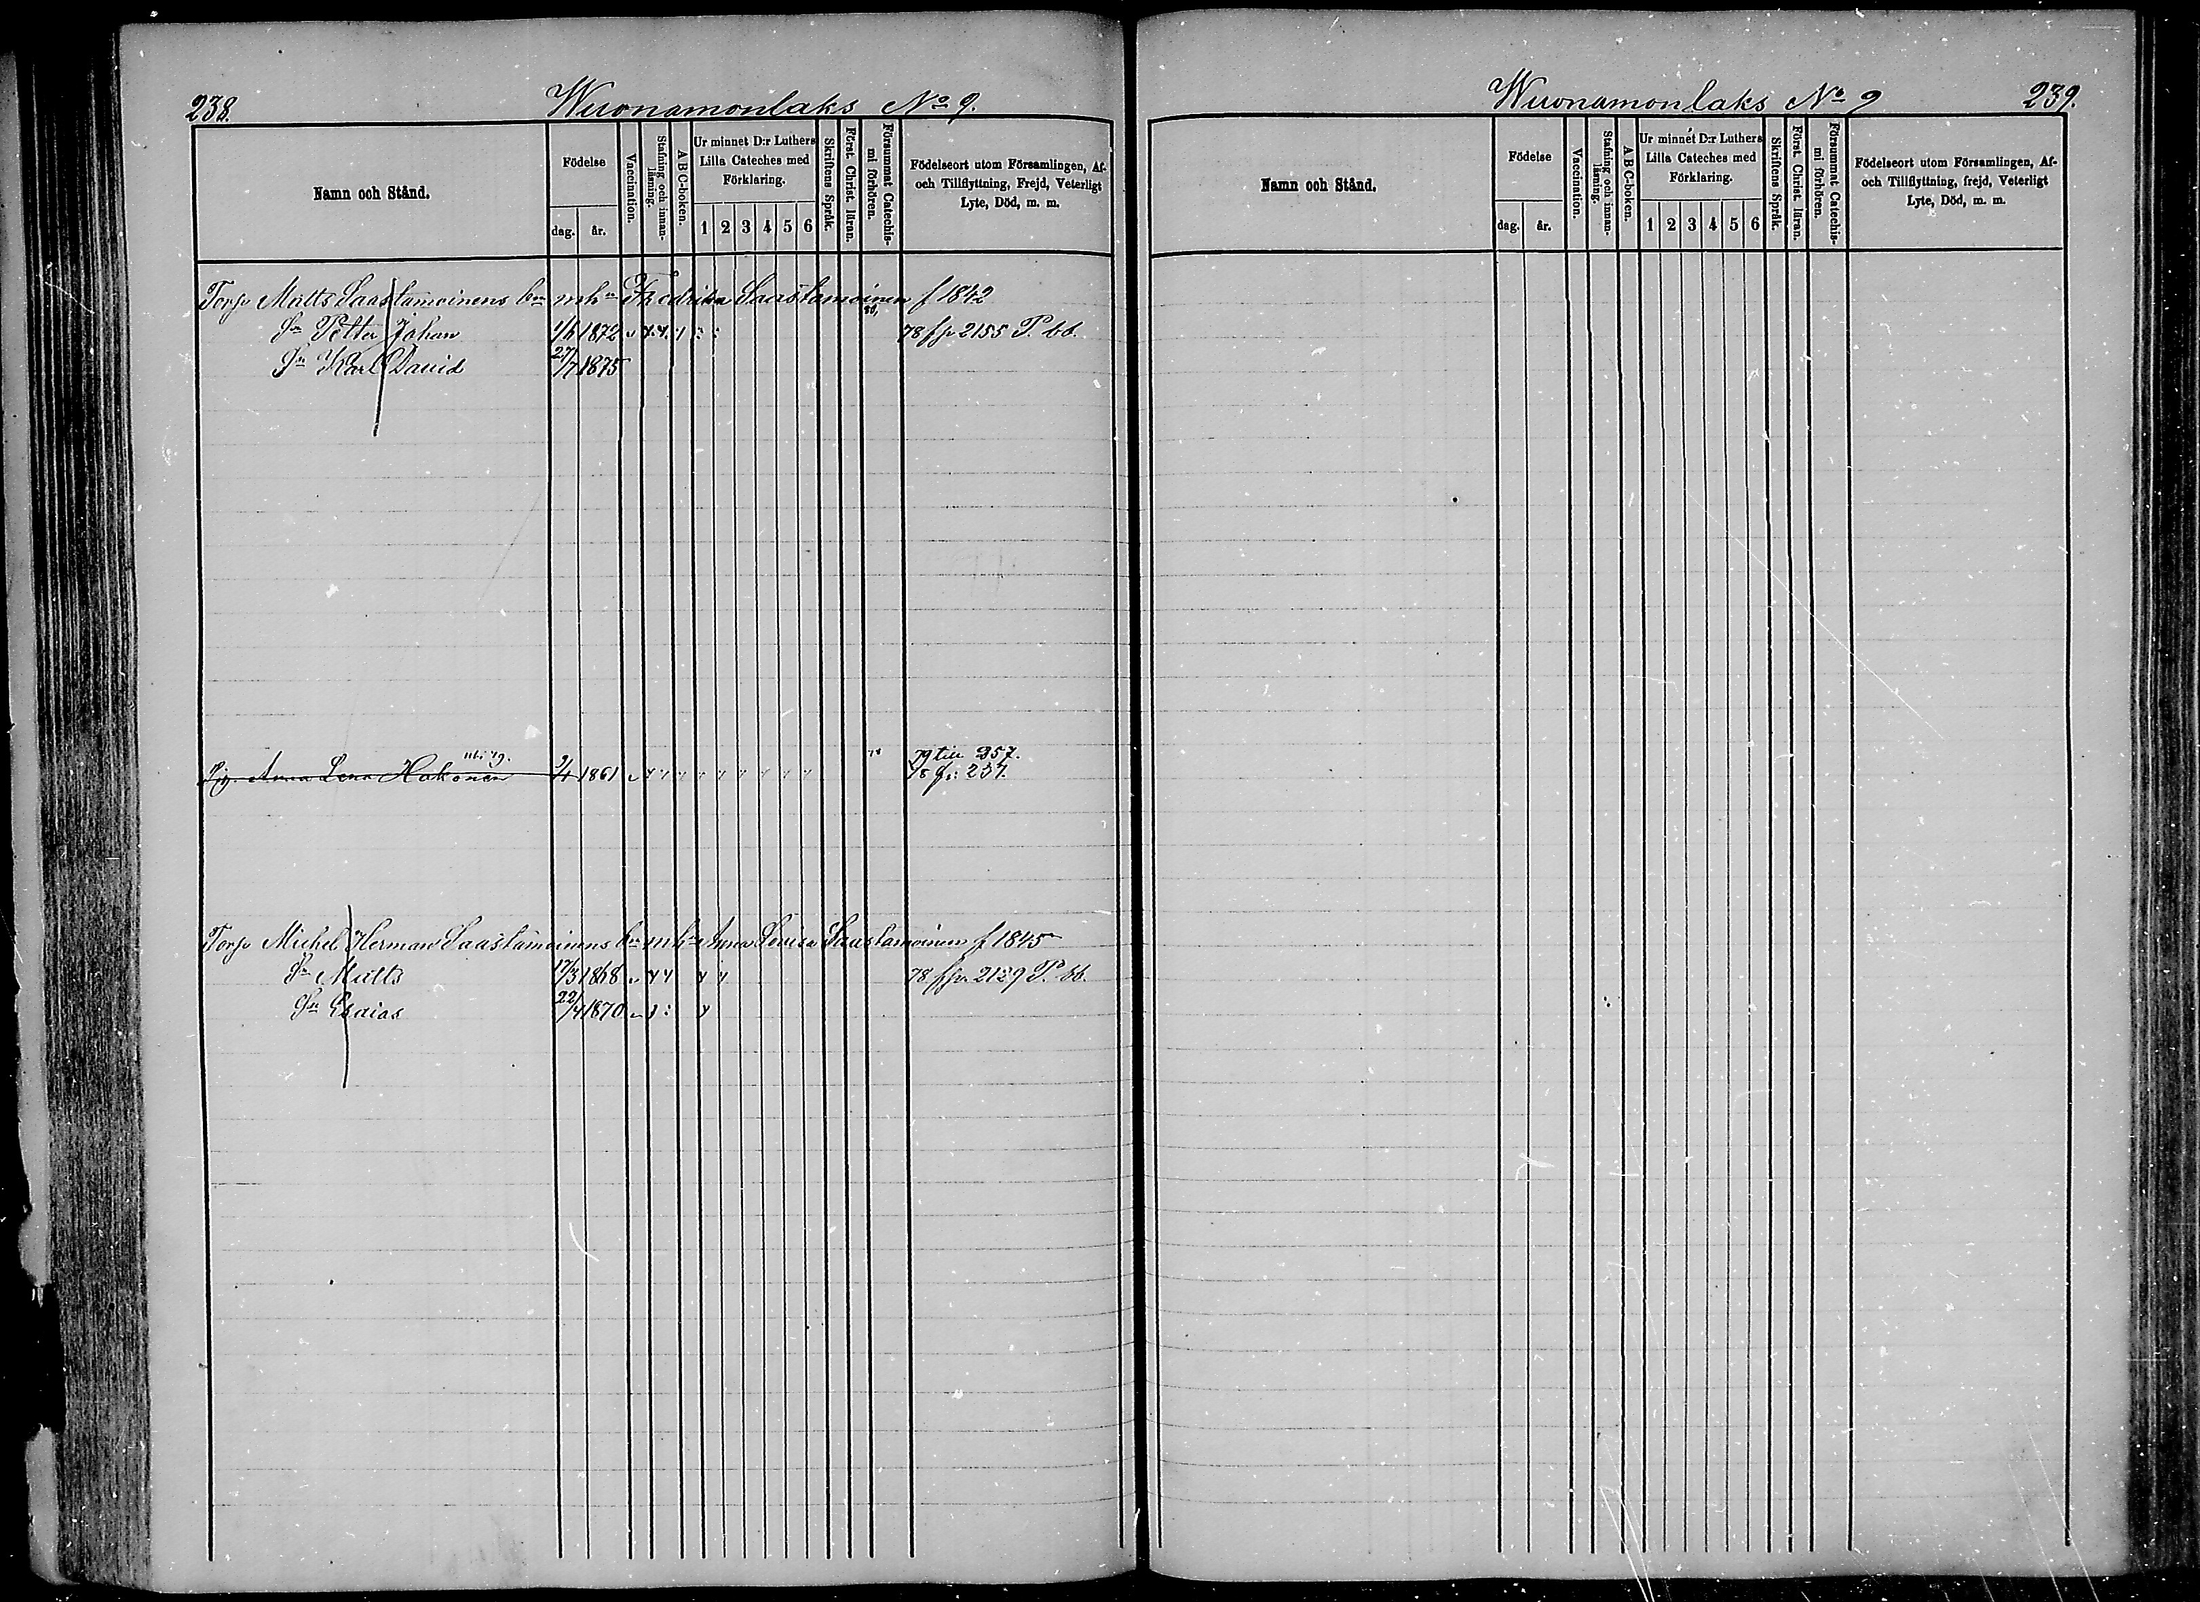 238. Wuonamonlaks No 9.
Namn och Stånd.
Födelse
dag. år.
Vaccination.
Stafning och innanläsning.
A B C-boken.
Ur minnet D:r Luthers Lilla Cateches med Förklaring.
1 2 3 4 5 6
Skriftens Språk.
Först. Christ. läran.
Försummat Catechismi förhören.
Födelseort utom Församlingen, Af- och Tillflyttning, Frejd, Veterligt Lyte, Död, m. m.
Torp Matts Saastamoinens bn mhu Fredrika Saastamoinen f 1842
Sn Petter Johan 1872 78 fr 2155 P. bb.
Sn Karl David 27/7 1875
Pig. Anna Lena Hakonen 1861 79 till 257.
78 fr: 237.
Torp Michel Herman Saastamoinens bn mhu Anna Lovisa Saastamoinen f 1845
Sn Matts 17/3 1868 78 fr 2129 P. bb.
Sn Esaias 22/4 1870
Wuonamonlaks No 9 239.
Namn och Stånd.
Födelse
dag. år.
Vaccination.
Stafning och innanläsning.
A B C-boken.
Ur minnet D:r Luthers Lilla Cateches med Förklaring.
1 2 3 4 5 6
Skriftens Språk.
Först. Christ. läran.
Försummat Catechismi förhören.
Födelseort utom Församlingen, Af- och Tillflyttning, frejd, Veterligt Lyte, Död, m. m.